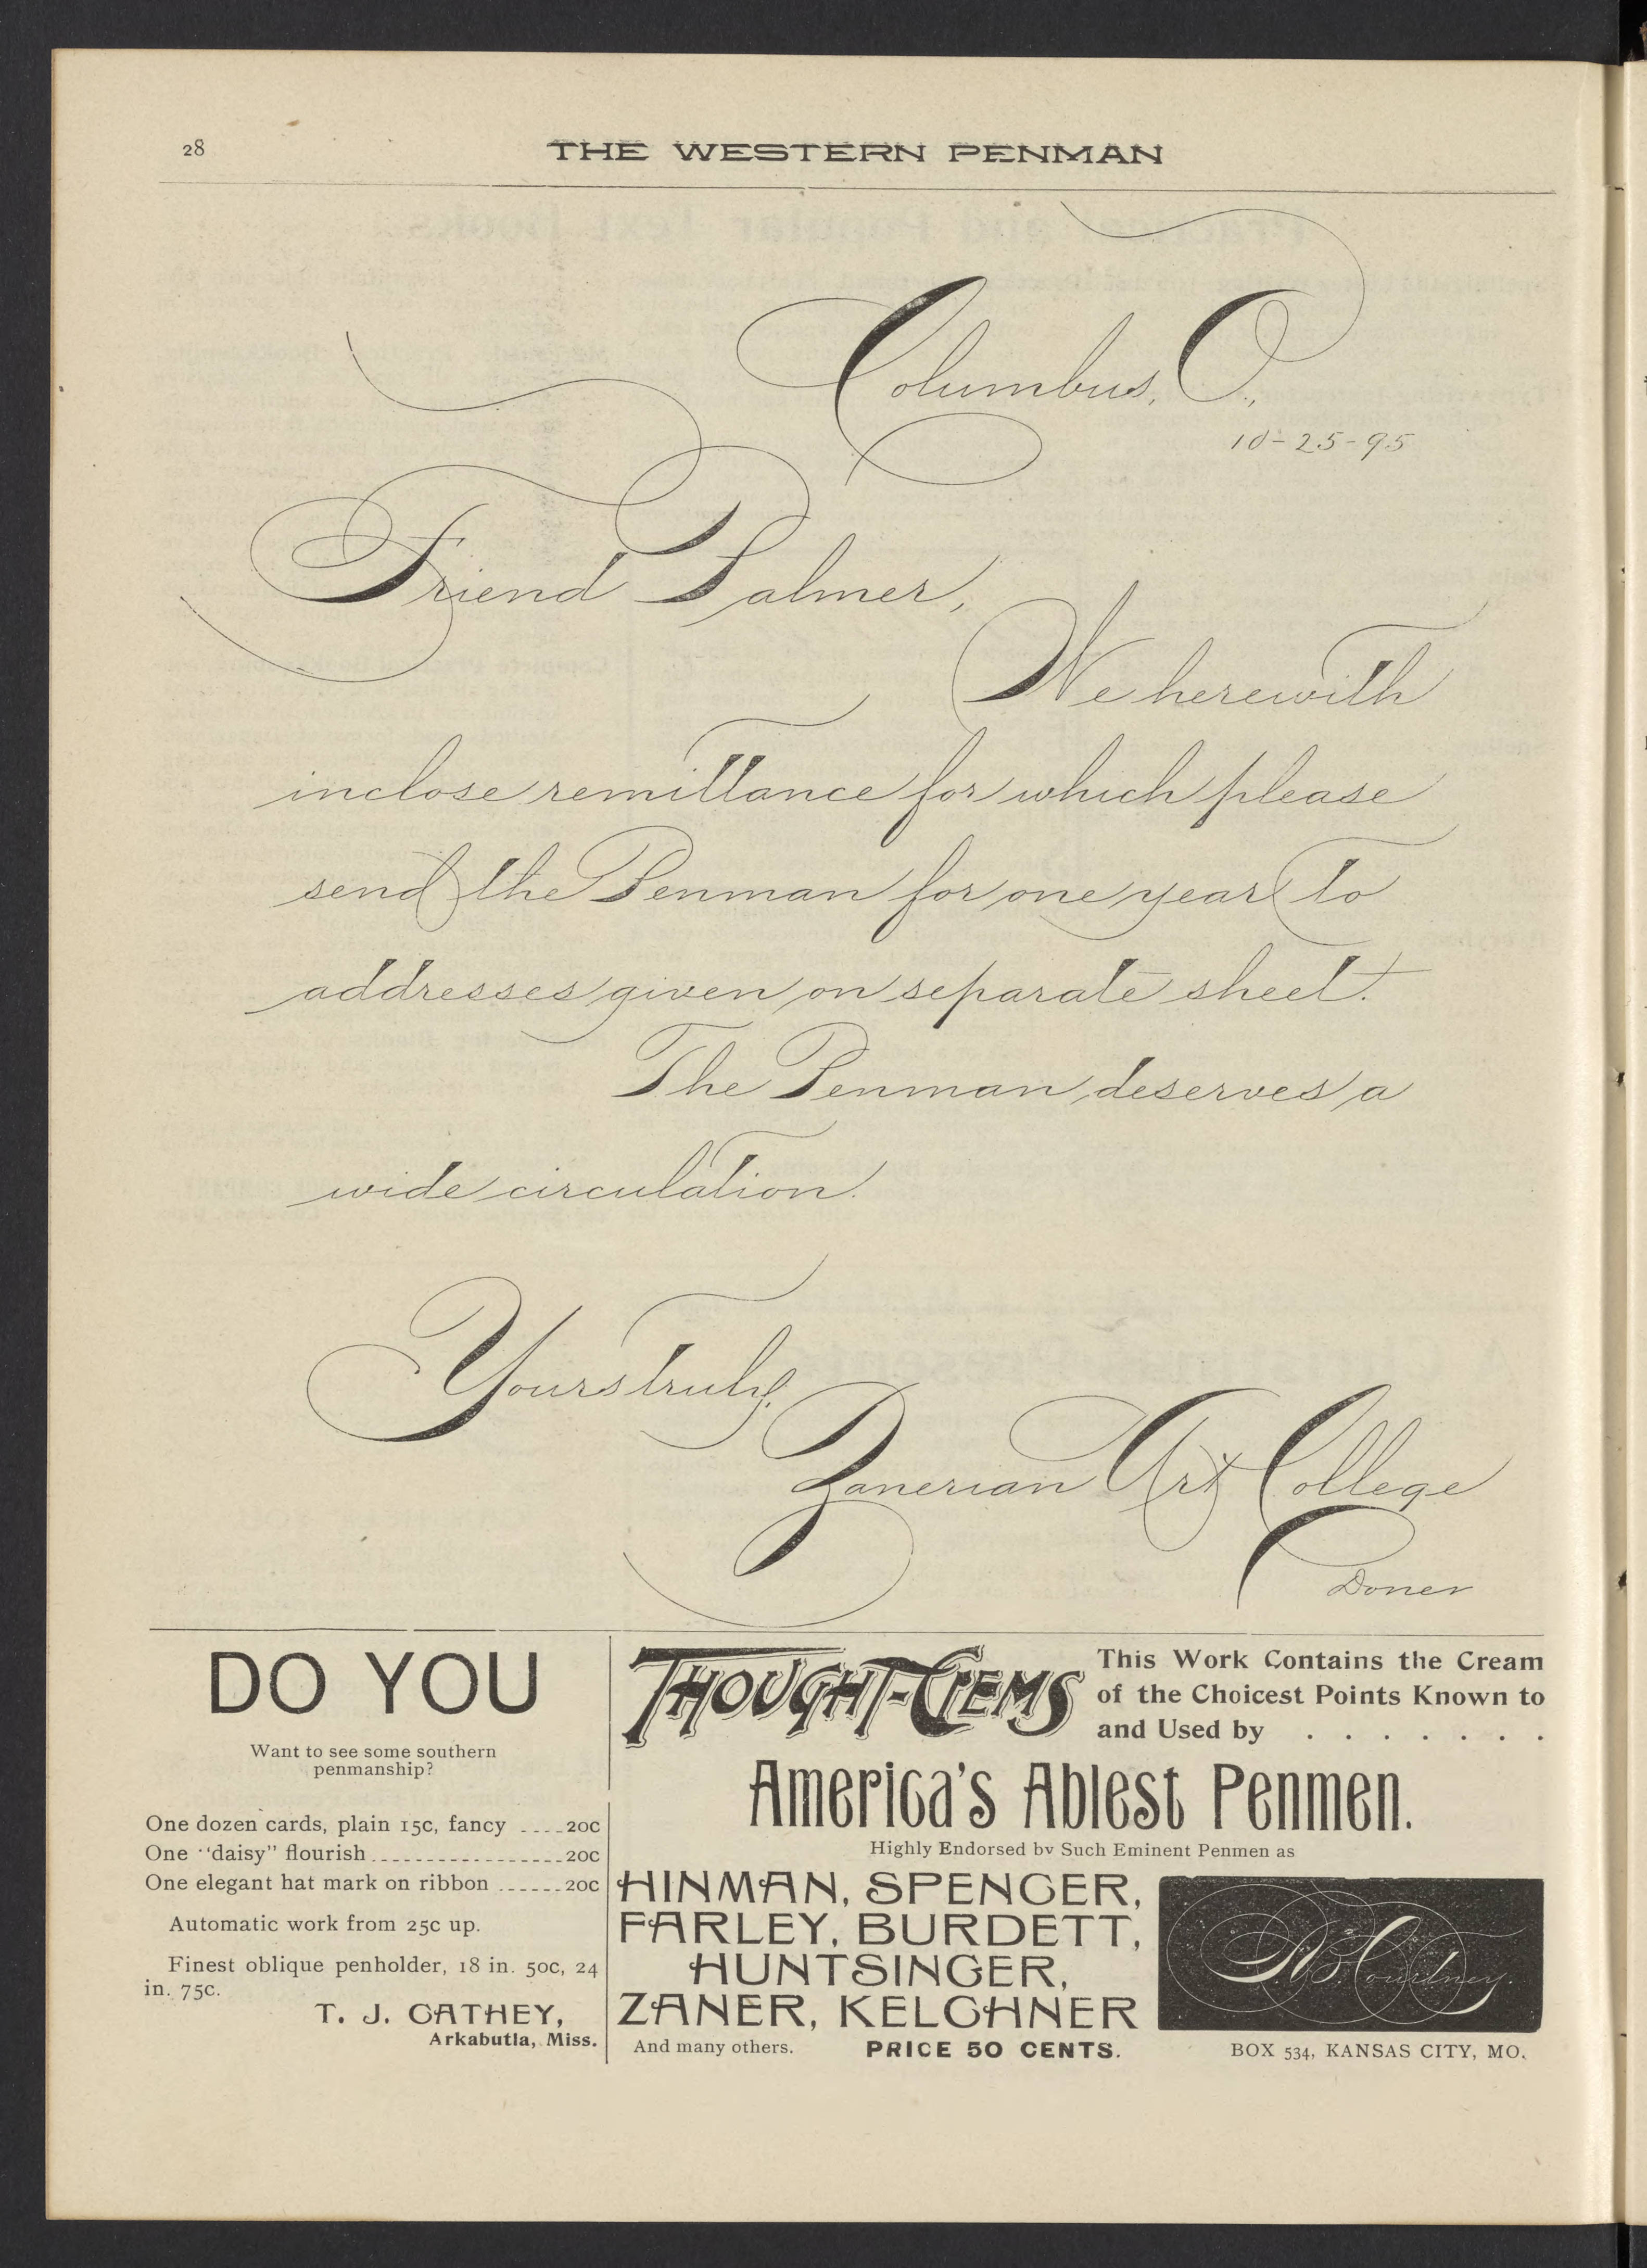 28
THE WESTERN PENMAN
Columbus, O.,
10-25-95
Friend Palmer,
We herewith
inclose remittance for which please
send the Penman for one year to
addresses given on separate sheet.
The Penman deserves a
wide circulation.
Yours truly,
Zanerian Art College
Doner
DO YOU
Want to see some southern
penmanship?
One dozen cards, plain 15c, fancy ....20c
One "daisy" flourish.................20c
One elegant hat mark on ribbon ......20c
Automatic work from 25c up.
Finest oblique penholder, 18 in. 50c, 24
in. 75c.
T. J. CATHEY,
Arkabutla, Miss.
THOUGHT-GEMS
This Work Contains the Cream
of the Choicest Points Known to
and Used by . . . . . . .
America's Ablest Penmen.
Highly Endorsed by Such Eminent Penmen as
HINMAN, SPENCER,
FARLEY, BURDETT,
HUNTSINGER,
ZANER, KELCHNER
And many others. PRICE 50 CENTS.
Courtney.
BOX 534, KANSAS CITY, MO.